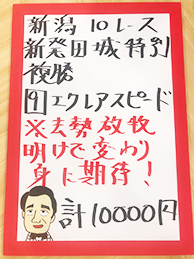 新潟10レース
新発田城特別
複勝
9エクレアスピード
※去勢放牧
明けで変わり
身に期待！
計10000円